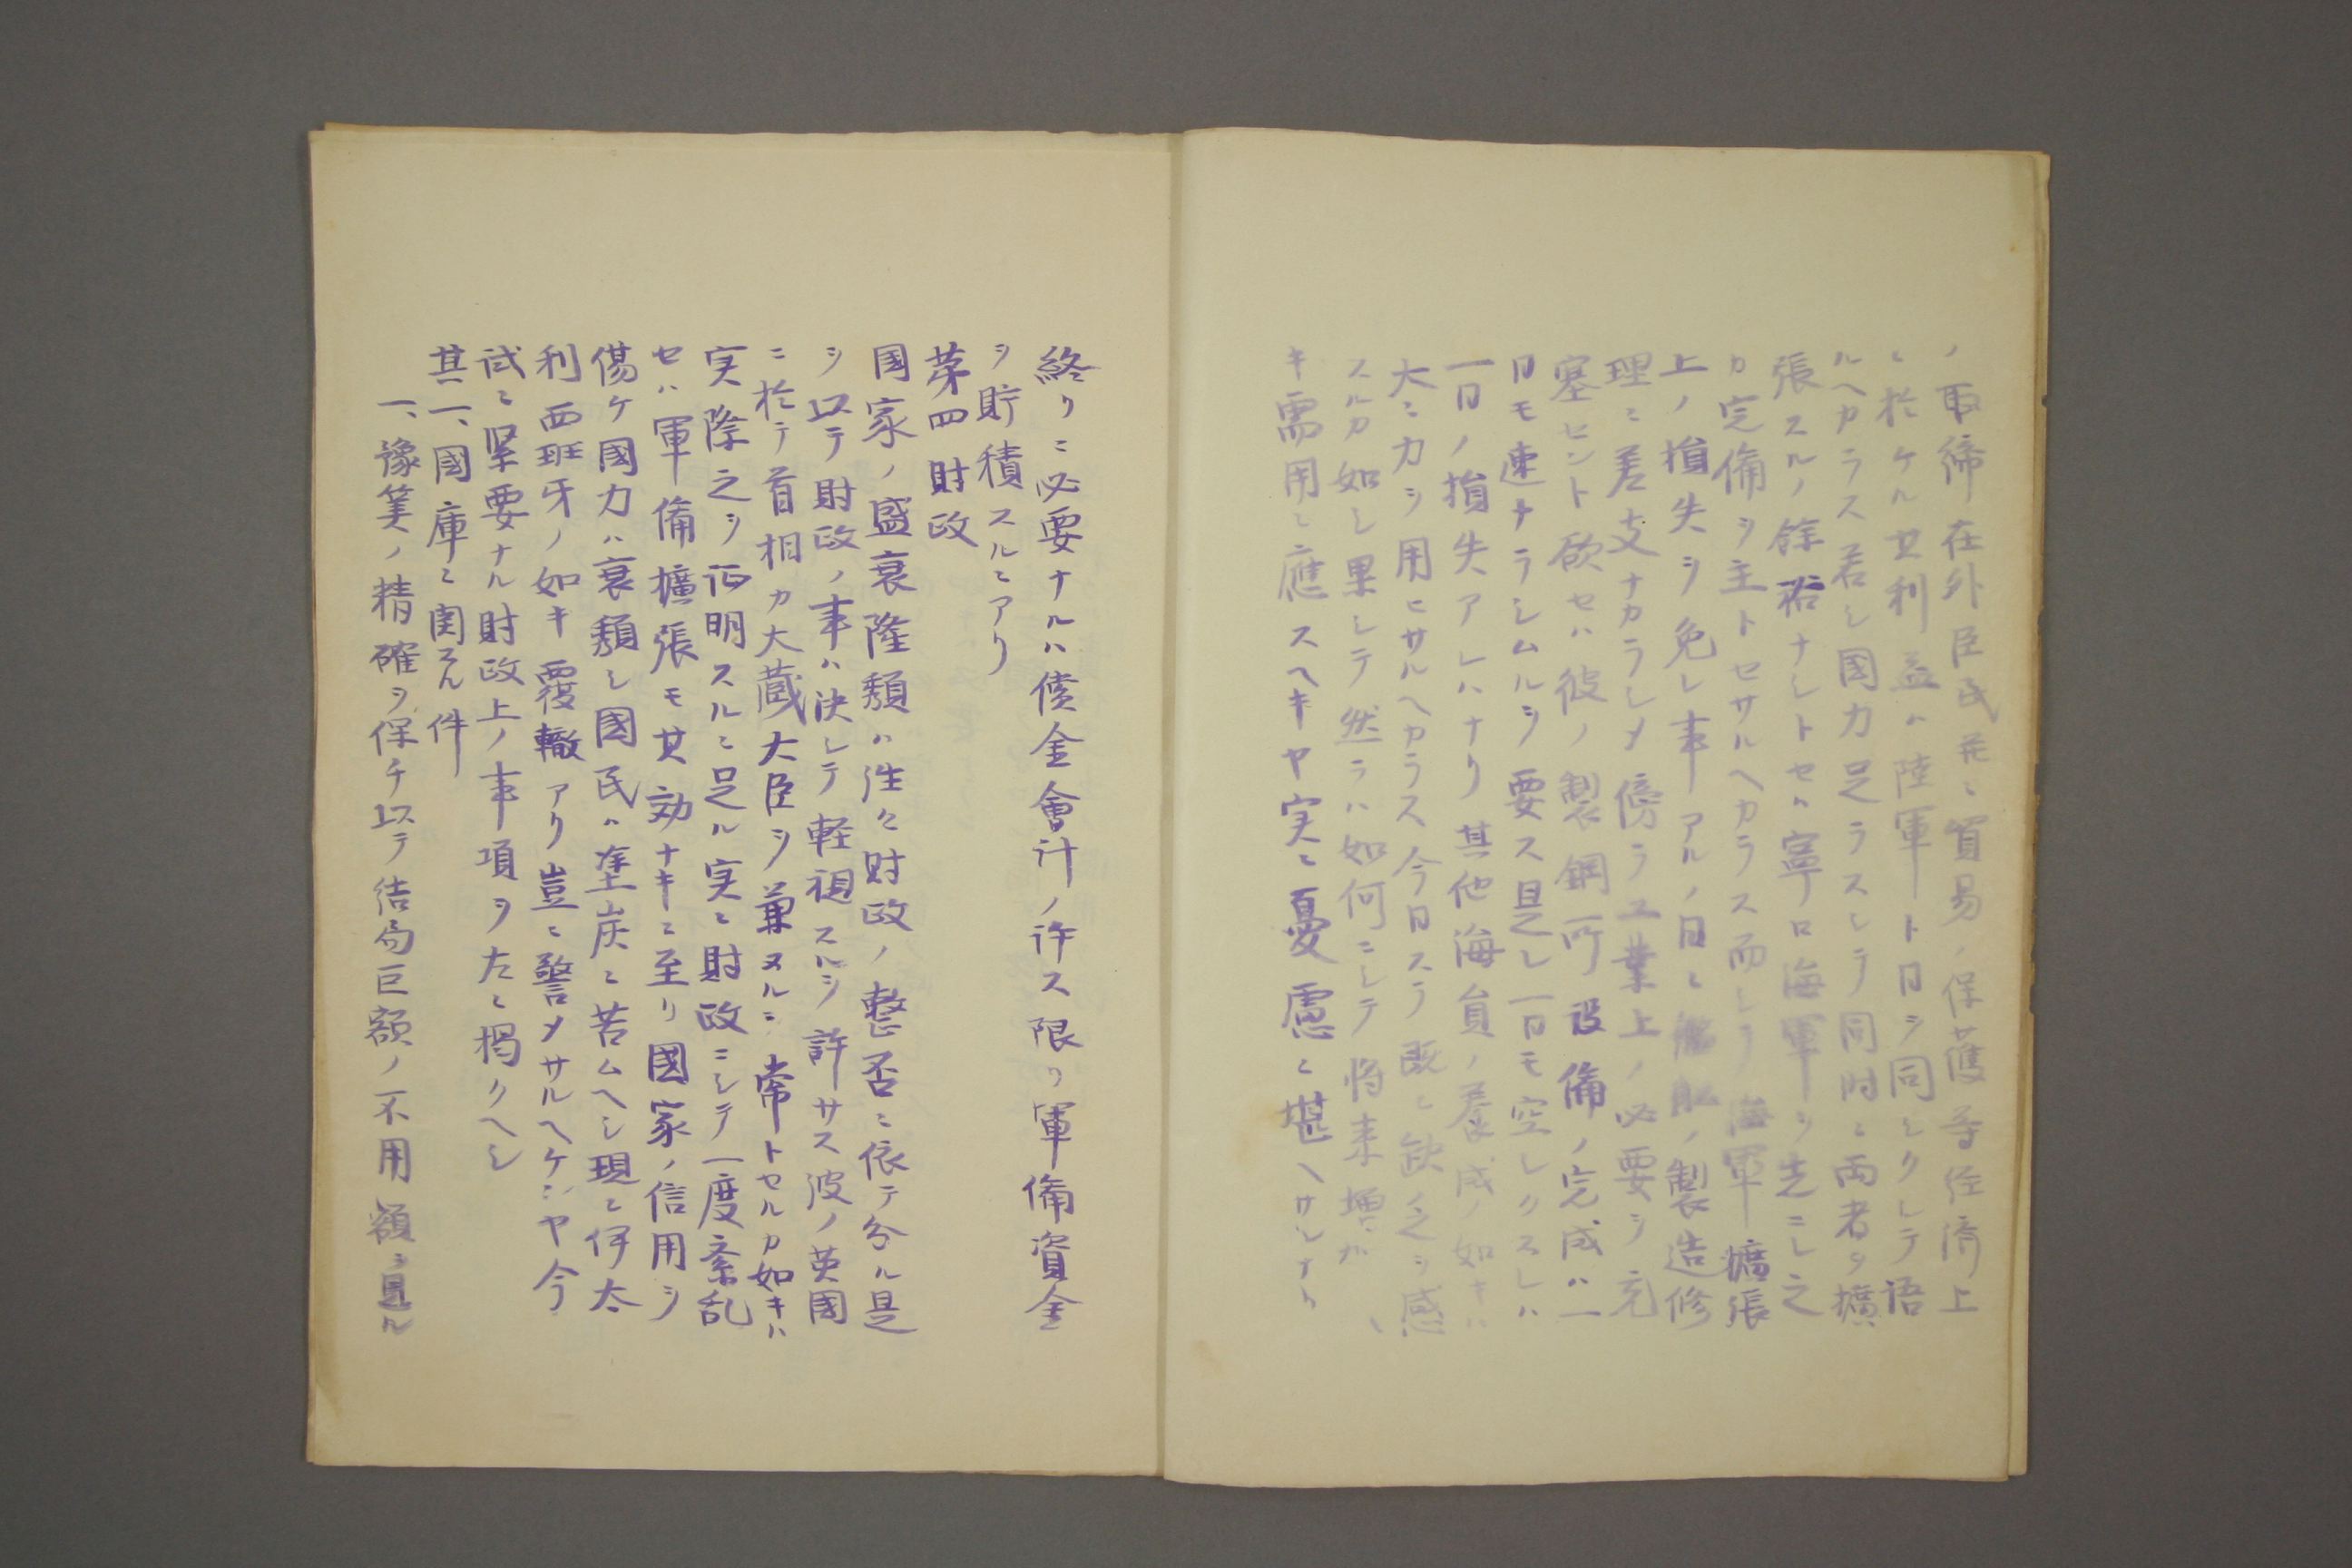 ノ取締在外臣民並ニ貿易ノ保護等経済上
ニ於ケル其利益ハ陸軍ト日ヲ同シクシテ語
ルヘカラス若シ國力足ラスシテ同時ニ両者ヲ擴
張スルノ餘裕ナシトセハ寧ロ海軍ヲ先ニシ之
カ完備ヲ主トセサルヘカラス而シテ海軍擴張
上ノ損失ヲ免レ事アルノ日ニ艦船ノ製造修
理ニ差支ナカラシメ傍ラ工業上ノ必要ヲ充
塞セント欲セハ彼ノ製鋼所設備ノ完成ハ一
日モ速ナラシムルヲ要ス是レ一日モ空シクスレハ
一日ノ損失アレハナリ其他海員ノ養成ノ如キハ
大ニ力ヲ用ヒサルヘカラス今日スラ既ニ缺乏ヲ感
スルカ如シ果シテ然ラハ如何ニシテ将来増加
キ需用ニ應スヘキヤ実ニ憂慮ニ堪ヘサルナリ
終リニ必要ナルハ倭金會計ノ許ス限リ軍備資金
ヲ貯積スルニアリ
第四 財政
國家ノ盛衰隆頽ハ往々財政ノ整否ニ依テ分ル是
ヲ以テ財政ノ事ハ決シテ軽視スルヲ許サス彼ノ英國
ニ於テ首相カ大蔵大臣ヲ兼ヌルヲ常トセルカ如キハ
実際之ヲ証明スルニ足ル実ニ財政ニシテ一度紊乱
セハ軍備擴張モ其効ナキニ至リ國家ノ信用ヲ
傷ケ國力ハ衰頽シ國民ハ塗炭ニ苦ムヘシ現ニ伊太
利西班牙ノ如キ覆轍アリ豈ニ警メサルヘケンヤ今
試ニ緊要ナル財政上ノ事項ヲ左ニ掲クヘシ
其一、國庫ニ関スル件
一、豫算ノ精確ヲ保チ以テ結局巨額ノ不用額ヲ見ル